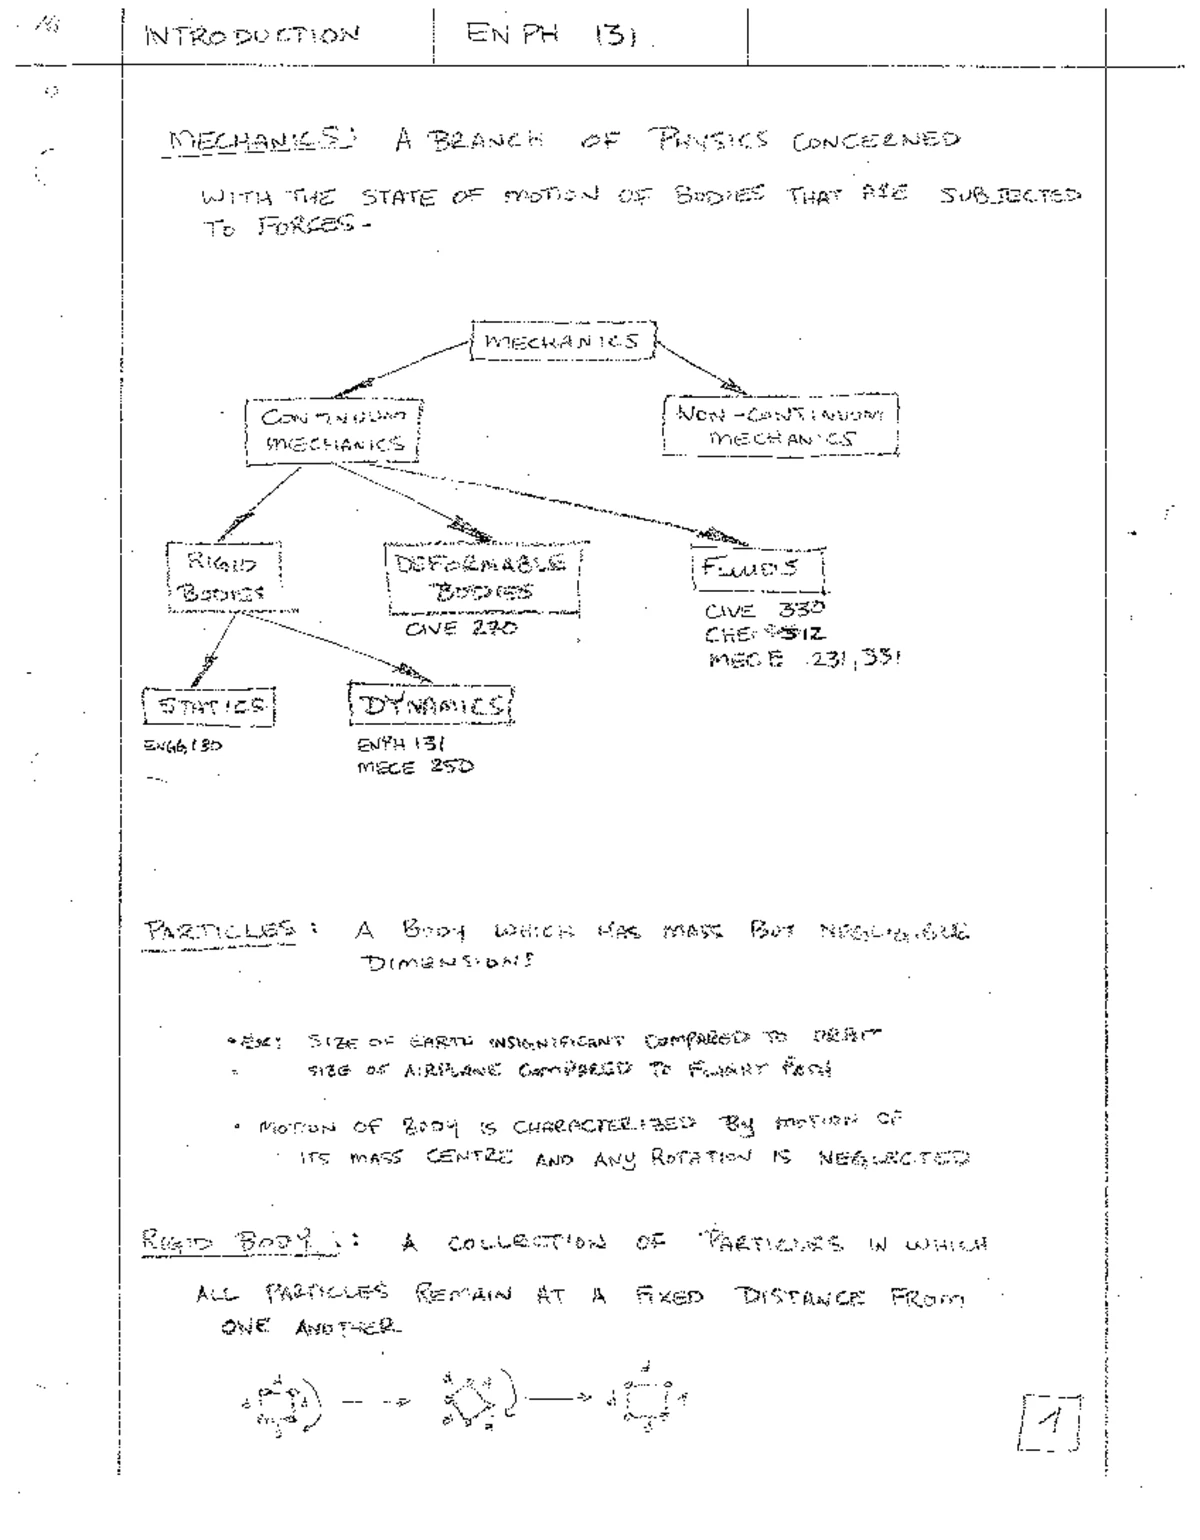 INTRODUCTION
EN PH 131.
MECHANICS: A BRANCH OF PHYSICS CONCERNED
WITH THE STATE OF MOTION OF BODIES THAT ARE SUBJECTED
TO FORCES-
MECHANICS
CONTINUUM
MECHANICS
NON-CONTINUUM
MECHANICS
RIGID
BODIES
DEFORMABLE
BODIES
CIVE 270
FLUIDS
CIVE 330
312
MEC E 231, 331
STATICS
ENGG 130
DYNAMICS
ENPH 131
MECE 250
PARTICLES: A BODY WHICH HAS MASS BUT NEGLIGIBLE
DIMENSIONS
• EX: SIZE OF EARTH INSIGNIFICANT COMPARED TO ORBIT
SIZE OF AIRPLANE COMPARED TO FLIGHT PATH
• MOTION OF BODY IS CHARACTERIZED BY MOTION OF
ITS MASS CENTRE AND ANY ROTATION IS NEGLECTED
RIGID BODY: A COLLECTION OF PARTICLES IN WHICH
ALL PARTICLES REMAIN AT A FIXED DISTANCE FROM
ONE ANOTHER
1